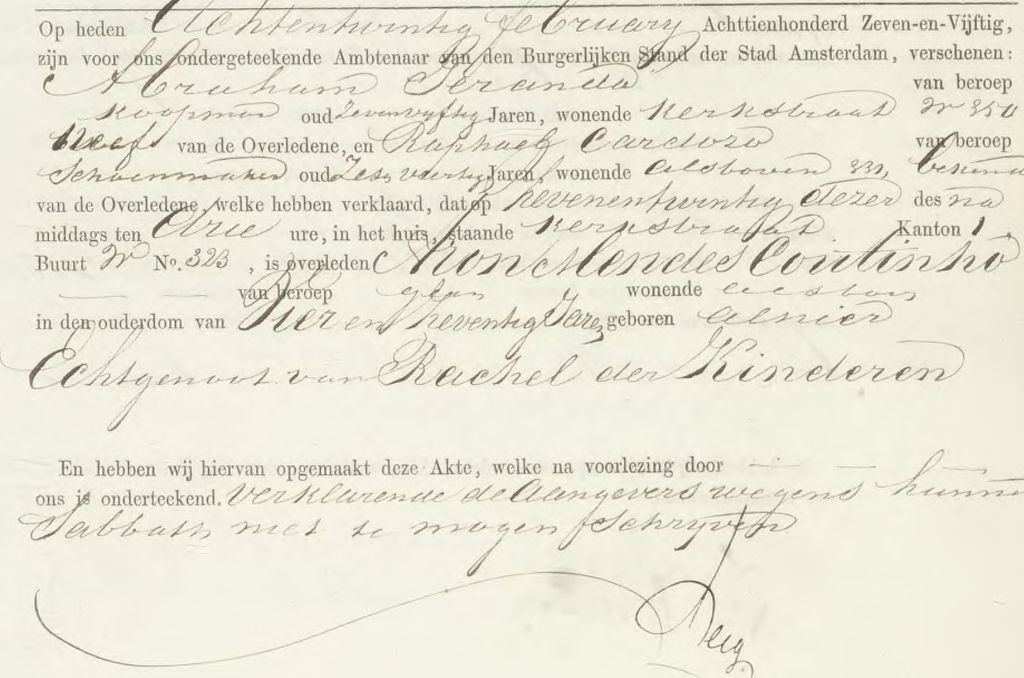 Op heden Achtentwintig february Achttienhonderd Zeven-en-Vijftig,
zijn voor ons ondergeteekende Ambtenaar van den Burgerlijken Stand der Stad Amsterdam, verschenen:
Abraham Teranda van beroep
Koopman oud Zevenvyftig Jaren, wonende Kerkstraat W 350
Neef van de Overledene, en Raphael Cardozo van beroep
Schoenmaker oud Zes veertig Jaren, wonende alsboven 331, bekende
van de Overledene, welke hebben verklaard, dat op Zevenentwintig dezer des na
middags ten Drie ure, in het huis, staande Kerkstraat Kanton 1.
Buurt W No. 323, is overleden Aron Mendes Coutinho
van beroep geen wonende alsboven
in den ouderdom van Vier en Zeventig Jare, geboren alhier
Echtgenoot van Rachel der Kinderen
En hebben wij hiervan opgemaakt deze Akte, welke na voorlezing door
ons is onderteekend. Verklarende de Aangevers wegens hunne
Sabbath niet te mogen Schryven